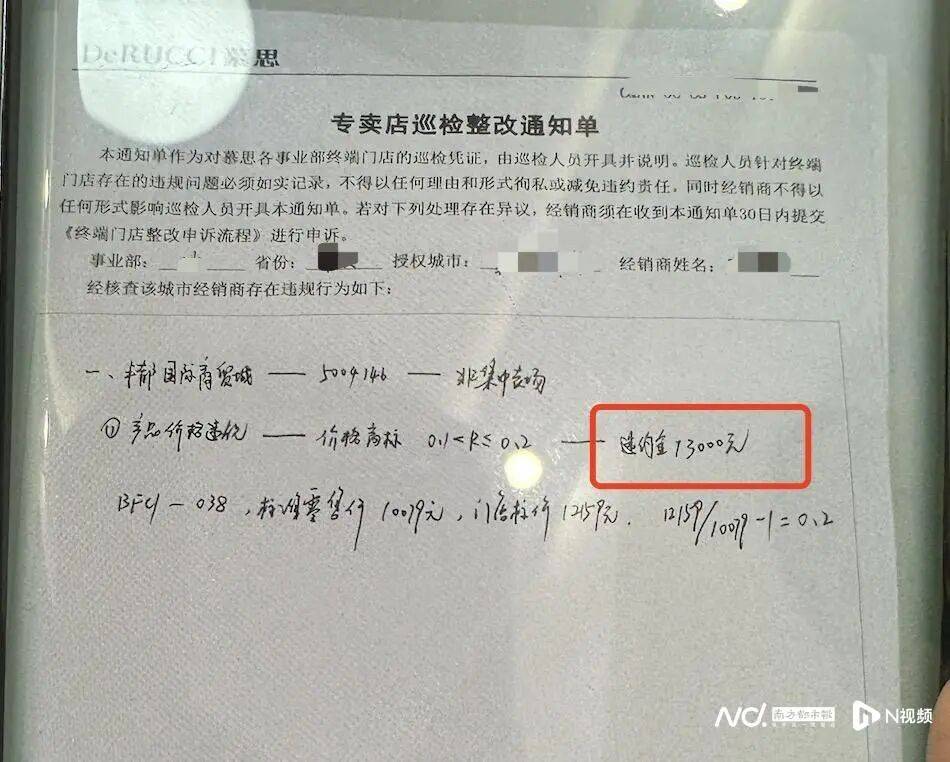 DeRUCCI慕思
专卖店巡检整改通知单
本通知单作为对慕思各事业部终端门店的巡检凭证，由巡检人员开具并说明。巡检人员针对终端
门店存在的违规问题必须如实记录，不得以任何理由和形式徇私或减免违约责任。同时经销商不得以
任何形式影响巡检人员开具本通知单。若对下列处理存在异议，经销商须在收到本通知单30日内提交
《终端门店整改申诉流程》进行申诉。
事业部： 省份： 授权城市： 经销商姓名：
经核查该城市经销商存在违规行为如下：
一、丰都国际商贸城 — 5004146 — 非集中卖场
① 产品价格违规 — 价格高标 0.1<R≤0.2 — 违约金13000元
标准零售价10079元，门店标价12159元． 12159/10079-1=0.2
N 南方都市报 N视频